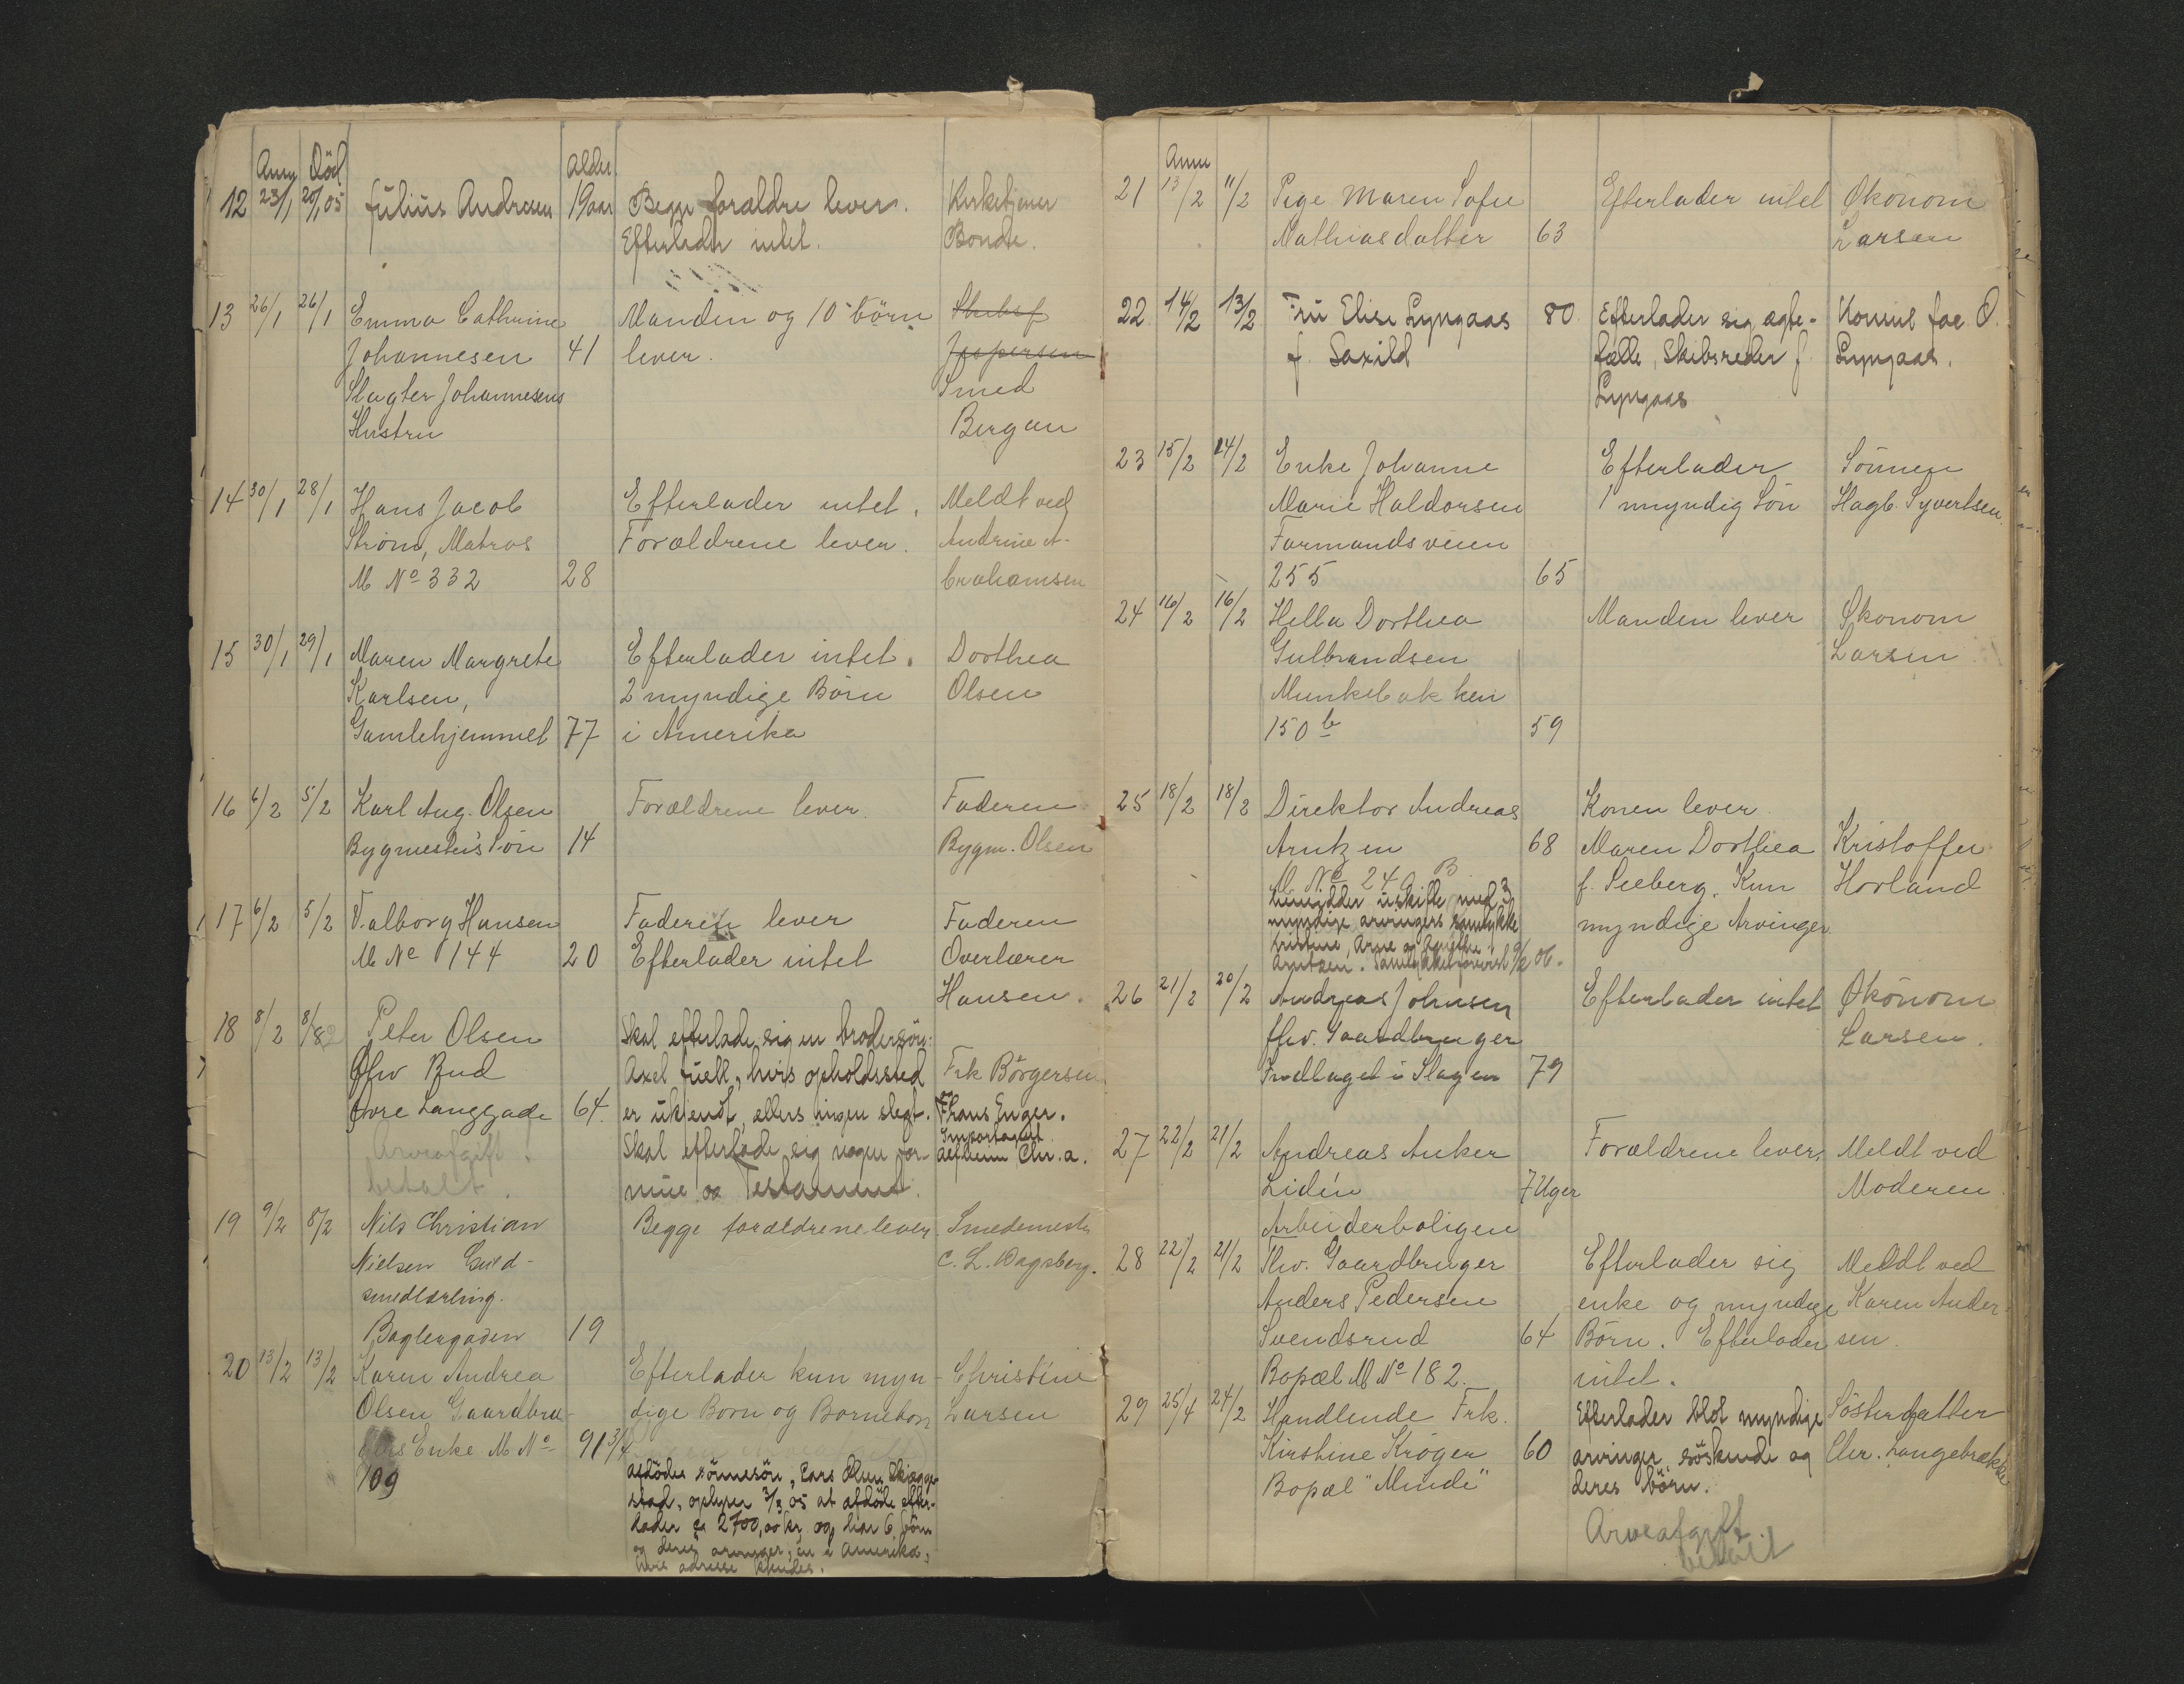 Anm Död Alder
12 23/1 20/1 05 Julius Andresen 19 aar Begge foraldre lever. Kirketjener
Efterlader intet. Bonde.
13 26/1 26/1 Emma Cathrine Manden og 10 börn Skibsf
Johannesen 41 lever. Jespersen
Slagter Johannesens Smed
Hustru Bergan
14 30/1 28/1 Hans Jacob Efterlader intet. Meldt ved
Ström, Matros Forældrene lever. Andrine A-
M No 332 28 brahamsen
15 30/1 29/1 Maren Margrete Efterlader intet. Dorthea
Karlsen, 2 myndige Börn Olsen
Gamlehjemmet 77 i Amerika
16 6/2 5/2 Karl Aug. Olsen Forældrene lever. Faderen
Bygmester's Sön 14 Bygm. Olsen
17 6/2 5/2 Valborg Hansen Faderen lever Faderen
M No 144 20 Efterlader intet Overlærer
Hansen.
18 8/2 8/2 Peter Olsen Skal efterlade sig en brodersön:
Fhv Bud Axel Juell, hvis opholdssted Frk Börgersen
Övre Langgade 64. er ukjendt, ellers ingen slegt. Hans Enger.
Arveafgift Skal efterlade sig nogen for-
betalt. mue og Testament. Chr. a.
19 9/2 8/2 Nils Christian Begge forældrene lever Smedemestr
Nielsen Guld- C. L. Dagsberg.
smedlærling.
Baglergaden 19
20 13/2 13/2 Karen Andrea Efterlader kun myn- Christine
Olsen Gaardbru- dige Born og Bornebörn Larsen
gers Enke M No 91 3/4
109
afdödes sönnesön, Lars Olsen Skjegge-
stad, oplyser 7/3 05 at afdöde efter-
lader ca 2700,00 kr og har 6 börn
og deres arvinger, en i Amerika,
hvis adresse kjendes.
Anm
21 13/2 11/2 Pige Maren Sofie Efterlader intet Økonom
Mathiasdatter 63 Larsen
22 14/2 13/2 Fru Elise Lyngaas 80 Efterlader sig ægte- Konsul Jac O.
f. Saxild fælle, Skibsreder J. Lyngaas.
Lyngaas
23 15/2 14/2 Enke Johanne Efterlader Sönnen
Marie Haldorsen 1 myndig Sön Hagb. Syvertsen
Farmandsveien
255 65
24 16/2 16/2 Hella Dorthea Manden lever Økonom
Gulbrandsen Larsen
Munkebakken
150 b 59
25 18/2 18/2 Direktor Andreas Konen lever
Arntzen 68 Maren Dorthea Kristoffer
M. No 24 B f. Seeberg. Kun Horland
hensidder i uskifte med 3 myndige Arvinger
myndige arvingers samtykke
Kristine, Arne og Agathe
Arntzen. Samtykket forevist 9/2 06.
26 21/2 20/2 Andreas Johnsen Efterlader intet Økonom
fhv. Gaardbruger Larsen.
Indlaget i Slagen 79
27 22/2 21/2 Andreas Anker Forældrene lever. Meldt ved
Lidén 7 Uger Moderen
Arbeiderboligen
28 22/2 21/2 Fhv. Gaardbruger Efterlader sig Meldt ved
Anders Pedersen enke og myndige Karen Ander-
Svendsrud 64 Börn. Efterlader sen.
Bopæl M No 182. intet.
29 25/4 24/2 Handlende Frk. Efterlader blot myndige Söster datter
Kirstine Kröger 60 arvinger, söskende og Chr. Langebrække
Bopæl "Minde" deres börn.
Arveafgift.
betalt